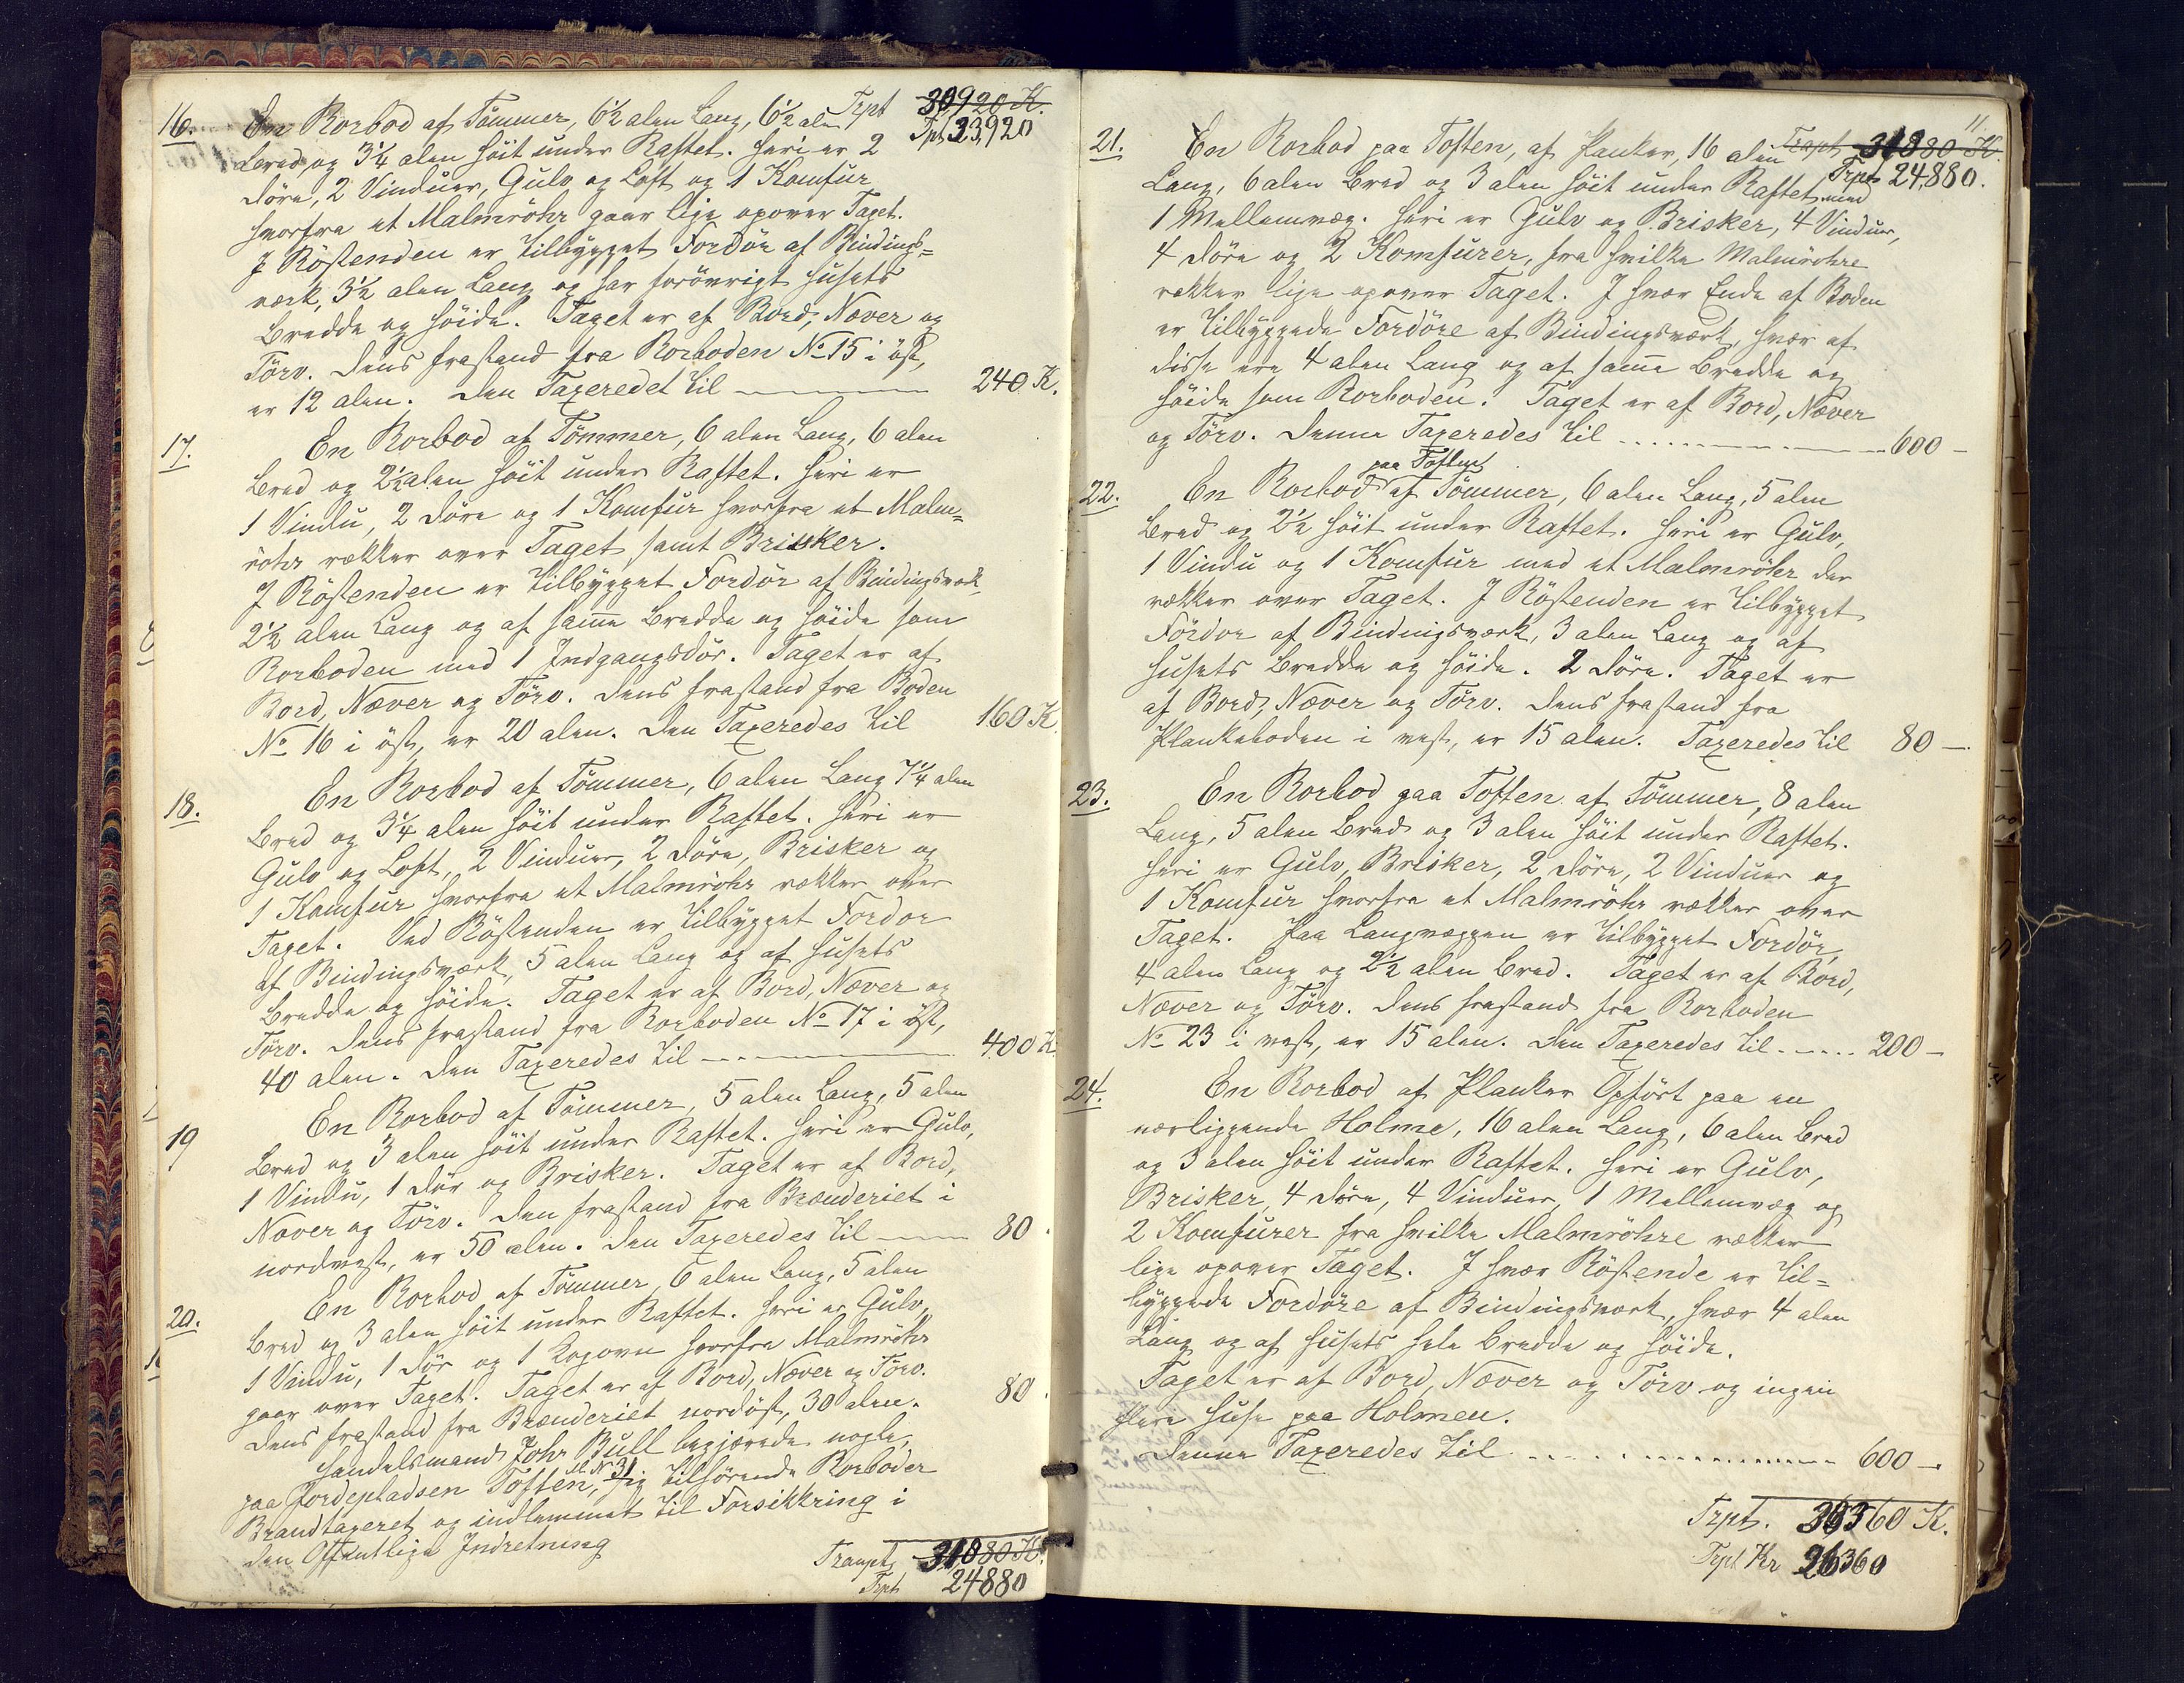 Trpt 30920 K.
Tpt 23920
16. En Rorbod af Tömmer, 6½ alen Lang, 6½ alen
bred og 3¼ alen höit under Raftet. Heri er 2
Döre, 2 Vinduer, Gulv og Loft og 1 Komfur
hvorfra et Malmröhr gaar lige opover Taget.
I Röstenden er tilbygget Fordör af Bindings=
værk, 3½ alen Lang og har forövrigt husets
Bredde og höide. Taget er af Bord, Næver og
Törv. Dens frastand fra Rorboden No 15 i öst,
er 12 alen. Den Taxeredet til 240 K.
17. En Rorbod af Tömmer, 6 alen Lang, 6 alen
bred og 2½ alen höit under Raftet. Heri er
1 Vindu, 2 Döre og 1 Komfur hvorfra et Malm=
röhr rækker over Taget, samt Brisker.
I Röstenden er tilbygget Fordör af Bindingsværk
2½ alen Lang og af samme Bredde og höide som
Rorboden med 1 Indgangsdör. Taget er af
Bord, Næver og Törv. Dens frastand fra Boden
No 16 i öst, er 20 alen. Den Taxeredes til 160 K
18. En Rorbod af Tömmer, 6 alen Lang 7¼ alen
bred og 3¼ alen höit under Raftet. Heri er
Gulv og Loft, 2 Vinduer, 2 Döre, Brisker og
1 Komfur hvorfra et Malmröhr rækker over
Taget. Ved Röstenden er tilbygget Fordör
af Bindingsværk, 5 alen Lang og af husets
Bredde og höide. Taget er af Bord, Næver og
Törv. Dens frastand fra Rorboden No 17 i öst,
40 alen. Den Taxeredes til 400 K
19 En Rorbod af Tömmer, 5 alen Lang, 5 alen
bred og 3 alen höit under Raftet. Heri er Gulv,
1 Vindu, 1 Dör og Brisker. Taget er af Bord,
Næver og Törv. Den frastand fra Brænderiet i
nordvest, er 50 alen. Den Taxeredes til 80.
20. En Rorbod af Tömmer, 6 alen Lang, 5 alen
bred og 3 alen höit under Raftet. Heri er Gulv,
1 Vindu, 1 Dör og 1 Kogovn hvorfra Malmröhr
gaar over Taget. Taget er af Bord, Næver og Törv.
Dens frastand fra Brænderiet nordöst, 30 alen. 80.
Handelsmand Johr Bull begjærede nogle,
paa Jordepladsen Toften, M. No 31 sig tilhörende Rorboder
Brandtaxeret og indlemmet til Forsikkring i
den Offentlige Indretning
Transpt 31,880 K.
Trpt 24880
11.
Trapt 31880 K.
Trpt 24,880.
21. En Rorbod paa Toften, af Planker, 16 alen
Lang, 6 alen bred og 3 alen höit under Raftet med
1 Mellemvæg. Heri er Gulv og Brisker, 4 Vinduer,
4 Döre og 2 Komfurer, fra hvilke Malmröhre
rækker lige opover Taget. I hver Ende af Boden
er tilbyggede Fordöre af Bindingsværk, hvær af
disse ere 4 alen Lang og af samme Bredde og
höide som Rorboden. Taget er af Bord, Næver
og Törv. Denne Taxeredes til 600 –
22. En Rorbod paa Toften af Tömmer, 6 alen Lang, 5 alen
bred og 2½ höit under Raftet. Heri er Gulv,
1 Vindu og 1 Komfur med et Malmröhr der
rækker over Taget. I Röstenden er tilbygget
Fördor af Bindingsværk, 3 alen Lang og af
husets Bredde og höide. 2 Döre. Taget er
af Bord, Næver og Törv. Dens frastand fra
Plankeboden i vest, er 15 alen. Taxeredes til 80 –
23. En Rorbod paa Toften af Tömmer, 8 alen
Lang, 5 alen bred og 3 alen höit under Raftet.
Heri er Gulv, Brisker, 2 Döre, 2 Vinduer og
1 Komfur hvorfra et Malmröhr rækker over
Taget. Paa Langvæggen er tilbygget Fordör,
4 alen Lang og 2½ alen bred. Taget er af Bord,
Næver og Törv. Dens frastand fra Rorboden
No 23 i vest, er 15 alen. Den Taxeredes til 200 –
24. En Rorbod af Planker Opfört paa en
nærliggende Holme, 16 alen Lang, 6 alen bred
og 3 alen höit under Raftet. Heri er Gulv,
Brisker, 4 Döre, 4 Vinduer, 1 Mellemvæg og
2 Komfurer fra hvilke Malmröhre rækker
lige opover Taget. I hver Röstende er til=
byggede Fordöre af Bindingsværk, hvær 4 alen
Lang og af husets hele Bredde og höide.
Taget er af Bord, Næver og Törv og ingen
flere huse paa Holmen.
Denne Taxeredes til 600 –
Trpt. 33360 K.
Trpt Kr 26360